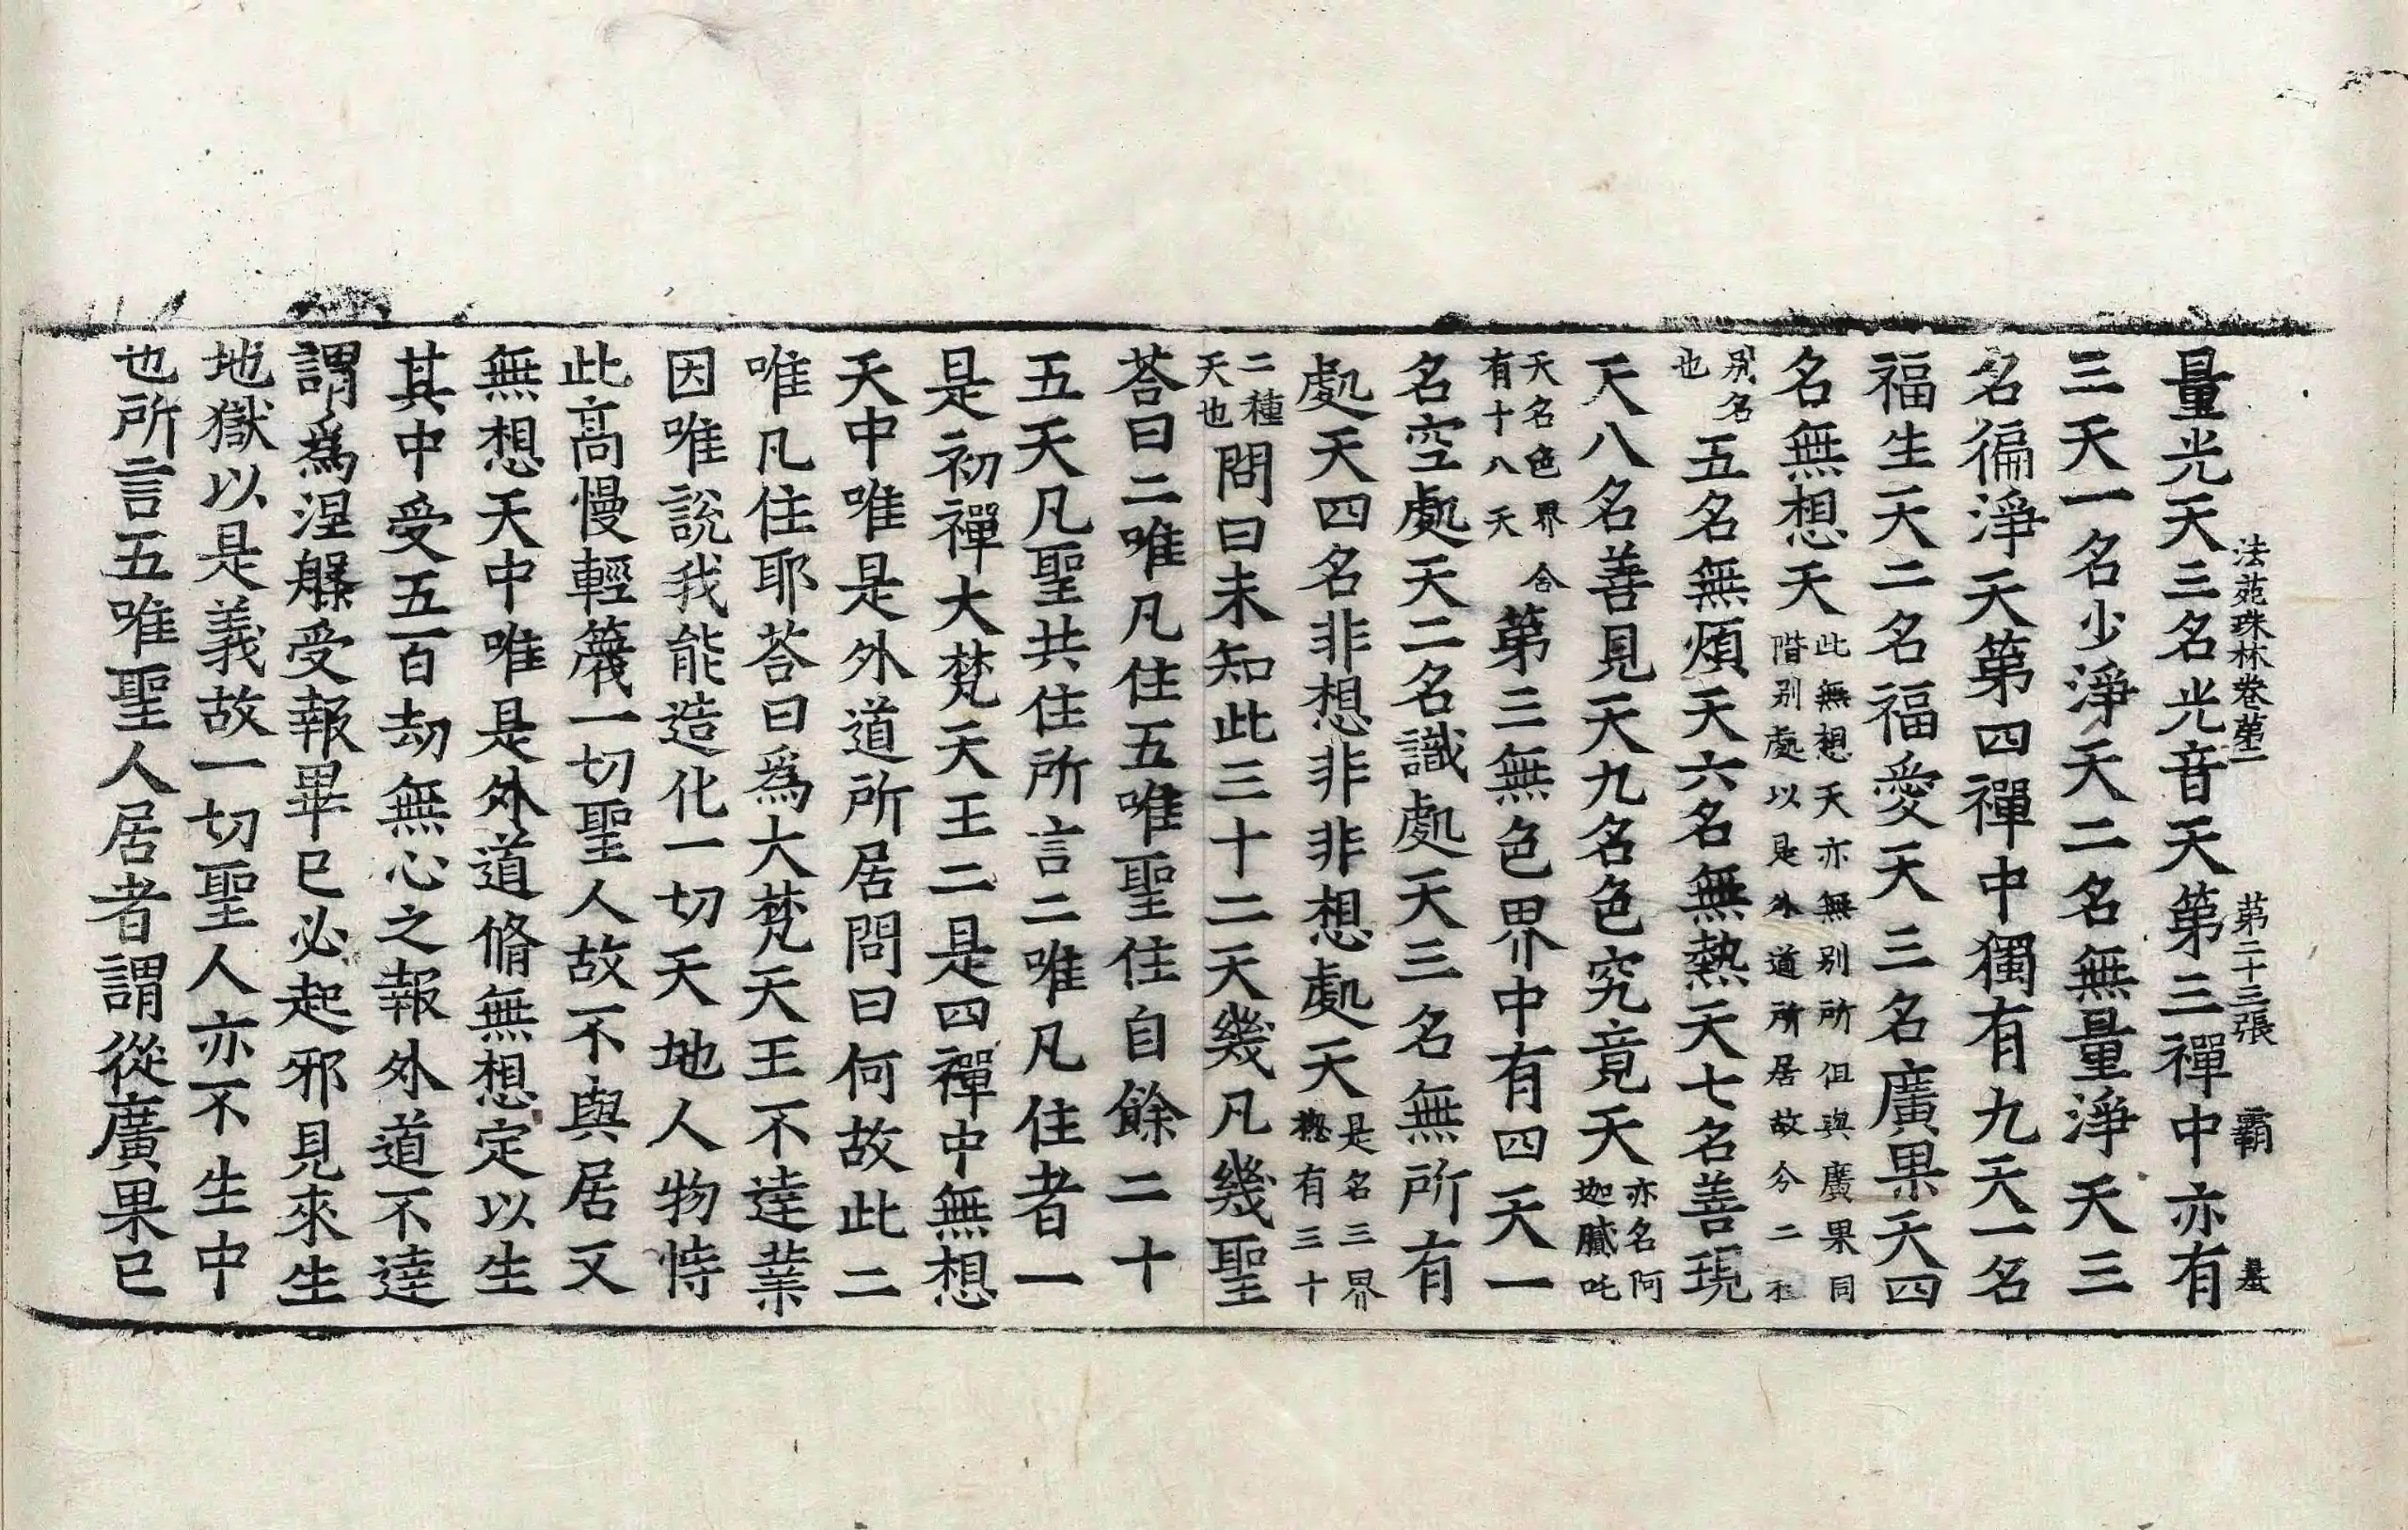 法苑珠林卷第二 第二十三張 覇
量光天三名光音天第三禪中亦有
三天一名少淨天二名無量淨天三
名徧淨天第四禪中獨有九天一名
福生天二名福愛天三名廣果天四
名無想天此無想天亦無別所但與廣果同階別處以是外道所居故今二
別名也五名無煩天六名無熱天七名善現
天八名善見天九名色究竟天亦名阿迦膩吒
天名色界合有十八天第三無色界中有四天一
名空處天二名識處天三名無所有
處天四名非想非非想處天是名三界揔有三十
二種天也問曰未知此三十二天幾凡幾聖
荅曰二唯凡住五唯聖住自餘二十
五天凡聖共住所言二唯凡住者一
是初禪大梵天王二是四禪中無想
天中唯是外道所居問曰何故此二
唯凡住耶荅曰爲大梵天王不達業
因唯說我能造化一切天地人物恃
此高慢輕篾一切聖人故不與居又
無想天中唯是外道脩無想定以生
其中受五百劫無心之報外道不達
謂爲涅槃受報畢已必起邪見來生
地獄以是義故一切聖人亦不生中
也所言五唯聖人居者謂從廣果已